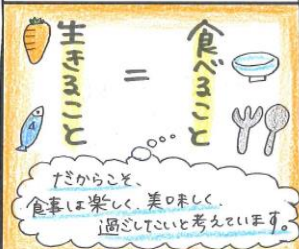 食べること
=
生きること
だからこそ、
食事は楽しく、美味しく
過ごしたいと考えています。